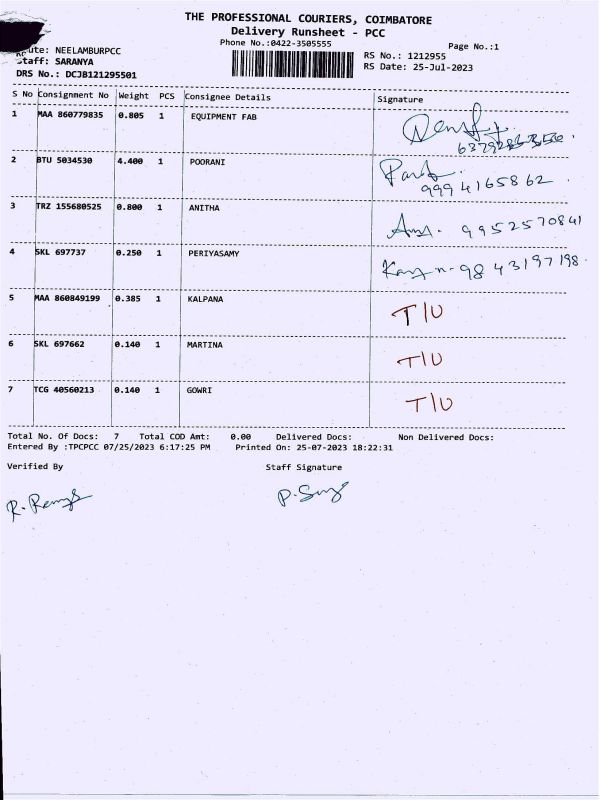 THE PROFESSIONAL COURIERS, COIMBATORE
Delivery Runsheet - PCC
Phone No.:0422-3505555
Page No.:1
Route: NEELAMBURPCC
RS No.: 1212955
Staff: SARANYA
RS Date: 25-Jul-2023
DRS No.: DCJB121295501
S No Consignment No Weight PCS Consignee Details Signature
1 MAA 860779835 0.805 1 EQUIPMENT FAB
2 BTU 5034530 4.400 1 POORANI
9994165862
3 TRZ 155680525 0.800 1 ANITHA
9952570841
4 SKL 697737 0.250 1 PERIYASAMY
9843197198
5 MAA 860849199 0.385 1 KALPANA T/U
6 SKL 697662 0.140 1 MARTINA T/U
7 TCG 40560213 0.140 1 GOWRI T/U
Total No. Of Docs: 7 Total COD Amt: 0.00 Delivered Docs: Non Delivered Docs:
Entered By :TPCPCC 07/25/2023 6:17:25 PM Printed On: 25-07-2023 18:22:31
Verified By Staff Signature